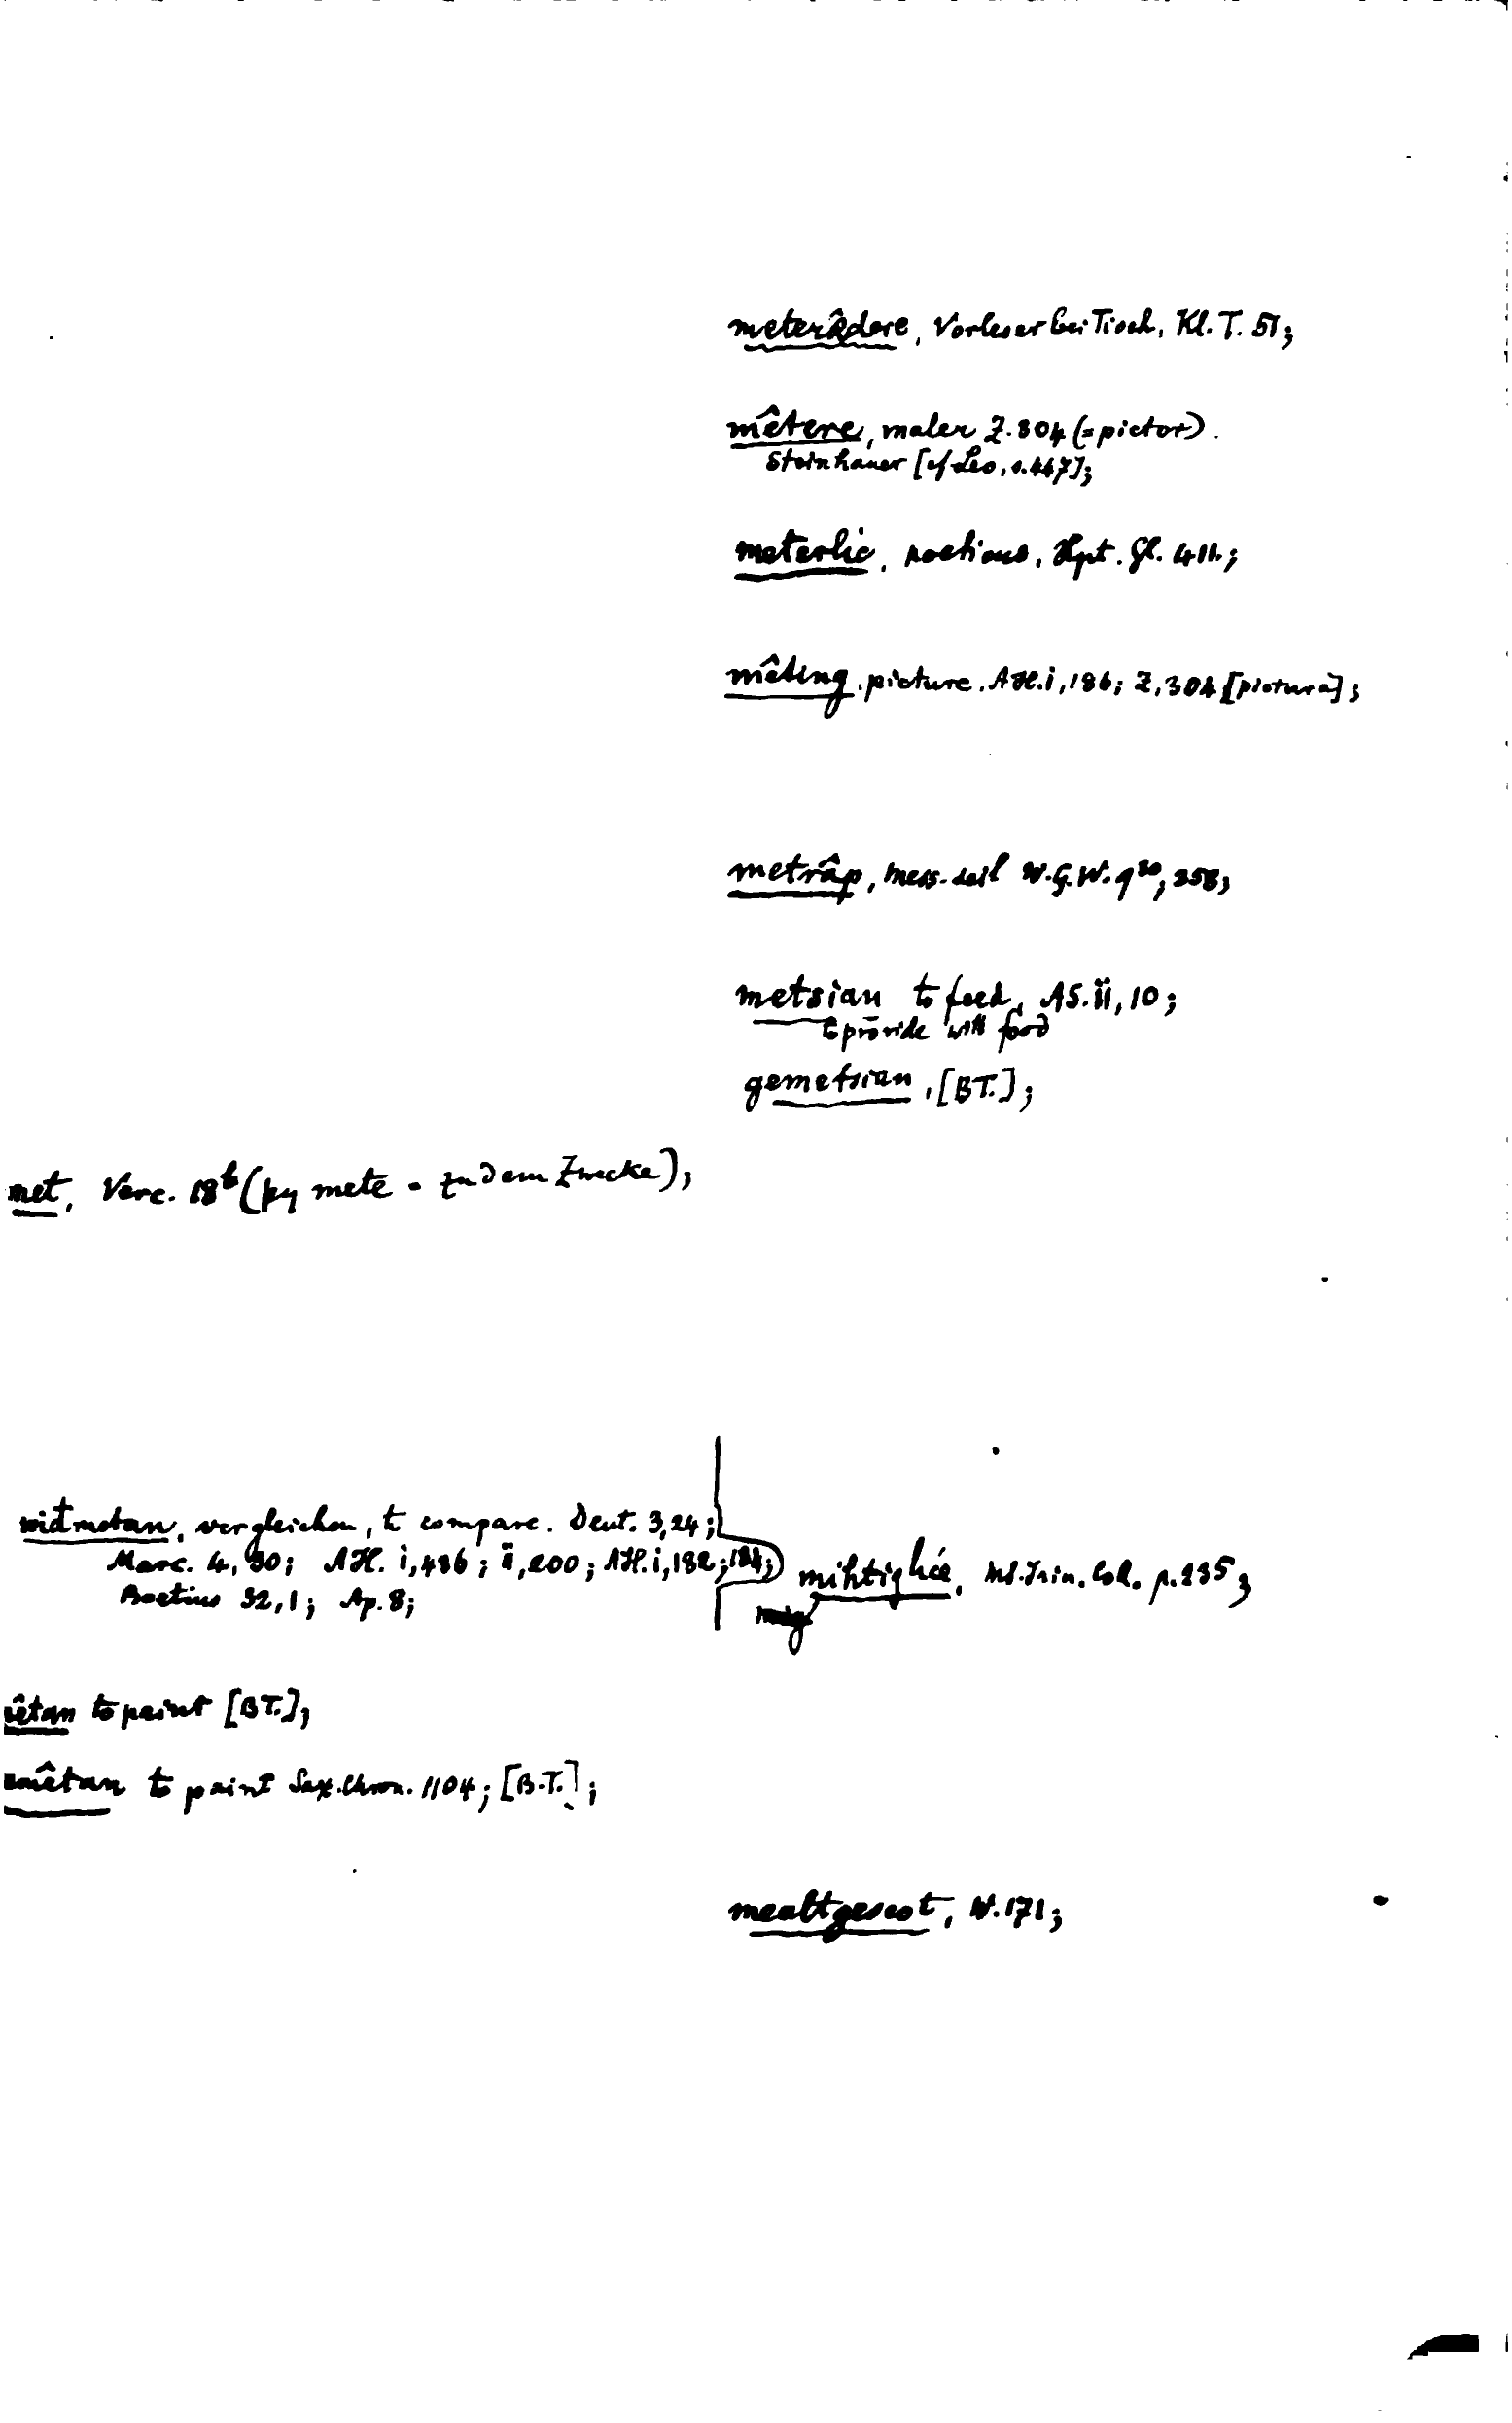 meterǣdere, Vorleser bei Tisch, Kl. T. 51;
mêtere, maler Z. 304 (= pictor).
Steinhauer [cf Leo, s. 467];
meterlic, poeticus, Hpt. Gl. 411.;
mêting, picture. AH. i, 186; Z, 304 [pictura];
metrâp, mess-seil W.G.W. 9³⁰, 358;
metsian to feed, AS. ii, 10;
to provide with food
gemetsian, [BT.];
met, Verc. 18ᵇ (þy mete = zu dem Zwecke);
widmetan, vergleichen, to compare. Deut. 3,24;
Marc. 4, 30; AH. i, 486; ii, 200; AH. i, 182; 184;
Boetius 32, 1; Ap. 8;
mihtiglice, Ms. Trin. Col. p. 235;
êtan to paint [BT.];
mêtan to paint Sax. Chron. 1104; [B.T.];
mealtgescot, W. 171;